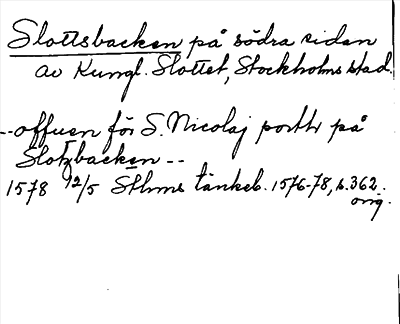 Slottsbacken på södra sidan
av Kungl. Slottet, Stockholms stad.
--offuen för S. Nicolaj portt på
Slotzbacken --
1578 12/5 Sthms tänkeb. 1576-78, s.362.
orig.